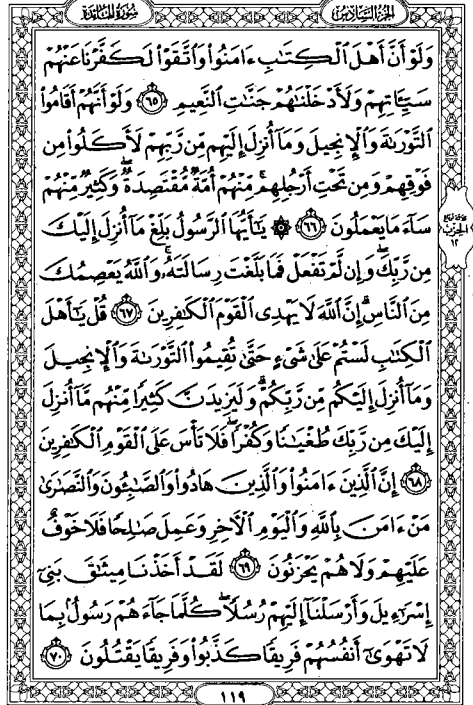 سُورَةُ المَائِدَةِ
الجزء السادس
وَلَوۡ أَنَّ أَهۡلَ ٱلۡكِتَٰبِ ءَامَنُواْ وَٱتَّقَوۡاْ لَكَفَّرۡنَا عَنۡهُمۡ
سَيِّـَٔاتِهِمۡ وَلَأَدۡخَلۡنَٰهُمۡ جَنَّٰتِ ٱلنَّعِيمِ ٦٥ وَلَوۡ أَنَّهُمۡ أَقَامُواْ
ٱلتَّوۡرَىٰةَ وَٱلۡإِنجِيلَ وَمَآ أُنزِلَ إِلَيۡهِم مِّن رَّبِّهِمۡ لَأَكَلُواْ مِن
فَوۡقِهِمۡ وَمِن تَحۡتِ أَرۡجُلِهِمۚ مِّنۡهُمۡ أُمَّةٞ مُّقۡتَصِدَةٞۖ وَكَثِيرٞ مِّنۡهُمۡ
سَآءَ مَا يَعۡمَلُونَ ٦٦ ۞ يَٰٓأَيُّهَا ٱلرَّسُولُ بَلِّغۡ مَآ أُنزِلَ إِلَيۡكَ
مِن رَّبِّكَۖ وَإِن لَّمۡ تَفۡعَلۡ فَمَا بَلَّغۡتَ رِسَالَتَهُۥۚ وَٱللَّهُ يَعۡصِمُكَ
مِنَ ٱلنَّاسِۗ إِنَّ ٱللَّهَ لَا يَهۡدِي ٱلۡقَوۡمَ ٱلۡكَٰفِرِينَ ٦٧ قُلۡ يَٰٓأَهۡلَ
ٱلۡكِتَٰبِ لَسۡتُمۡ عَلَىٰ شَيۡءٍ حَتَّىٰ تُقِيمُواْ ٱلتَّوۡرَىٰةَ وَٱلۡإِنجِيلَ
وَمَآ أُنزِلَ إِلَيۡكُم مِّن رَّبِّكُمۡۗ وَلَيَزِيدَنَّ كَثِيرٗا مِّنۡهُم مَّآ أُنزِلَ
إِلَيۡكَ مِن رَّبِّكَ طُغۡيَٰنٗا وَكُفۡرٗاۖ فَلَا تَأۡسَ عَلَى ٱلۡقَوۡمِ ٱلۡكَٰفِرِينَ
٦٨ إِنَّ ٱلَّذِينَ ءَامَنُواْ وَٱلَّذِينَ هَادُواْ وَٱلصَّٰبِـُٔونَ وَٱلنَّصَٰرَىٰ
مَنۡ ءَامَنَ بِٱللَّهِ وَٱلۡيَوۡمِ ٱلۡأٓخِرِ وَعَمِلَ صَٰلِحٗا فَلَا خَوۡفٌ
عَلَيۡهِمۡ وَلَا هُمۡ يَحۡزَنُونَ ٦٩ لَقَدۡ أَخَذۡنَا مِيثَٰقَ بَنِيٓ
إِسۡرَٰٓءِيلَ وَأَرۡسَلۡنَآ إِلَيۡهِمۡ رُسُلٗاۖ كُلَّمَا جَآءَهُمۡ رَسُولُۢ بِمَا
لَا تَهۡوَىٰٓ أَنفُسُهُمۡ فَرِيقٗا كَذَّبُواْ وَفَرِيقٗا يَقۡتُلُونَ ٧٠
الحزب
١٢
١١٩